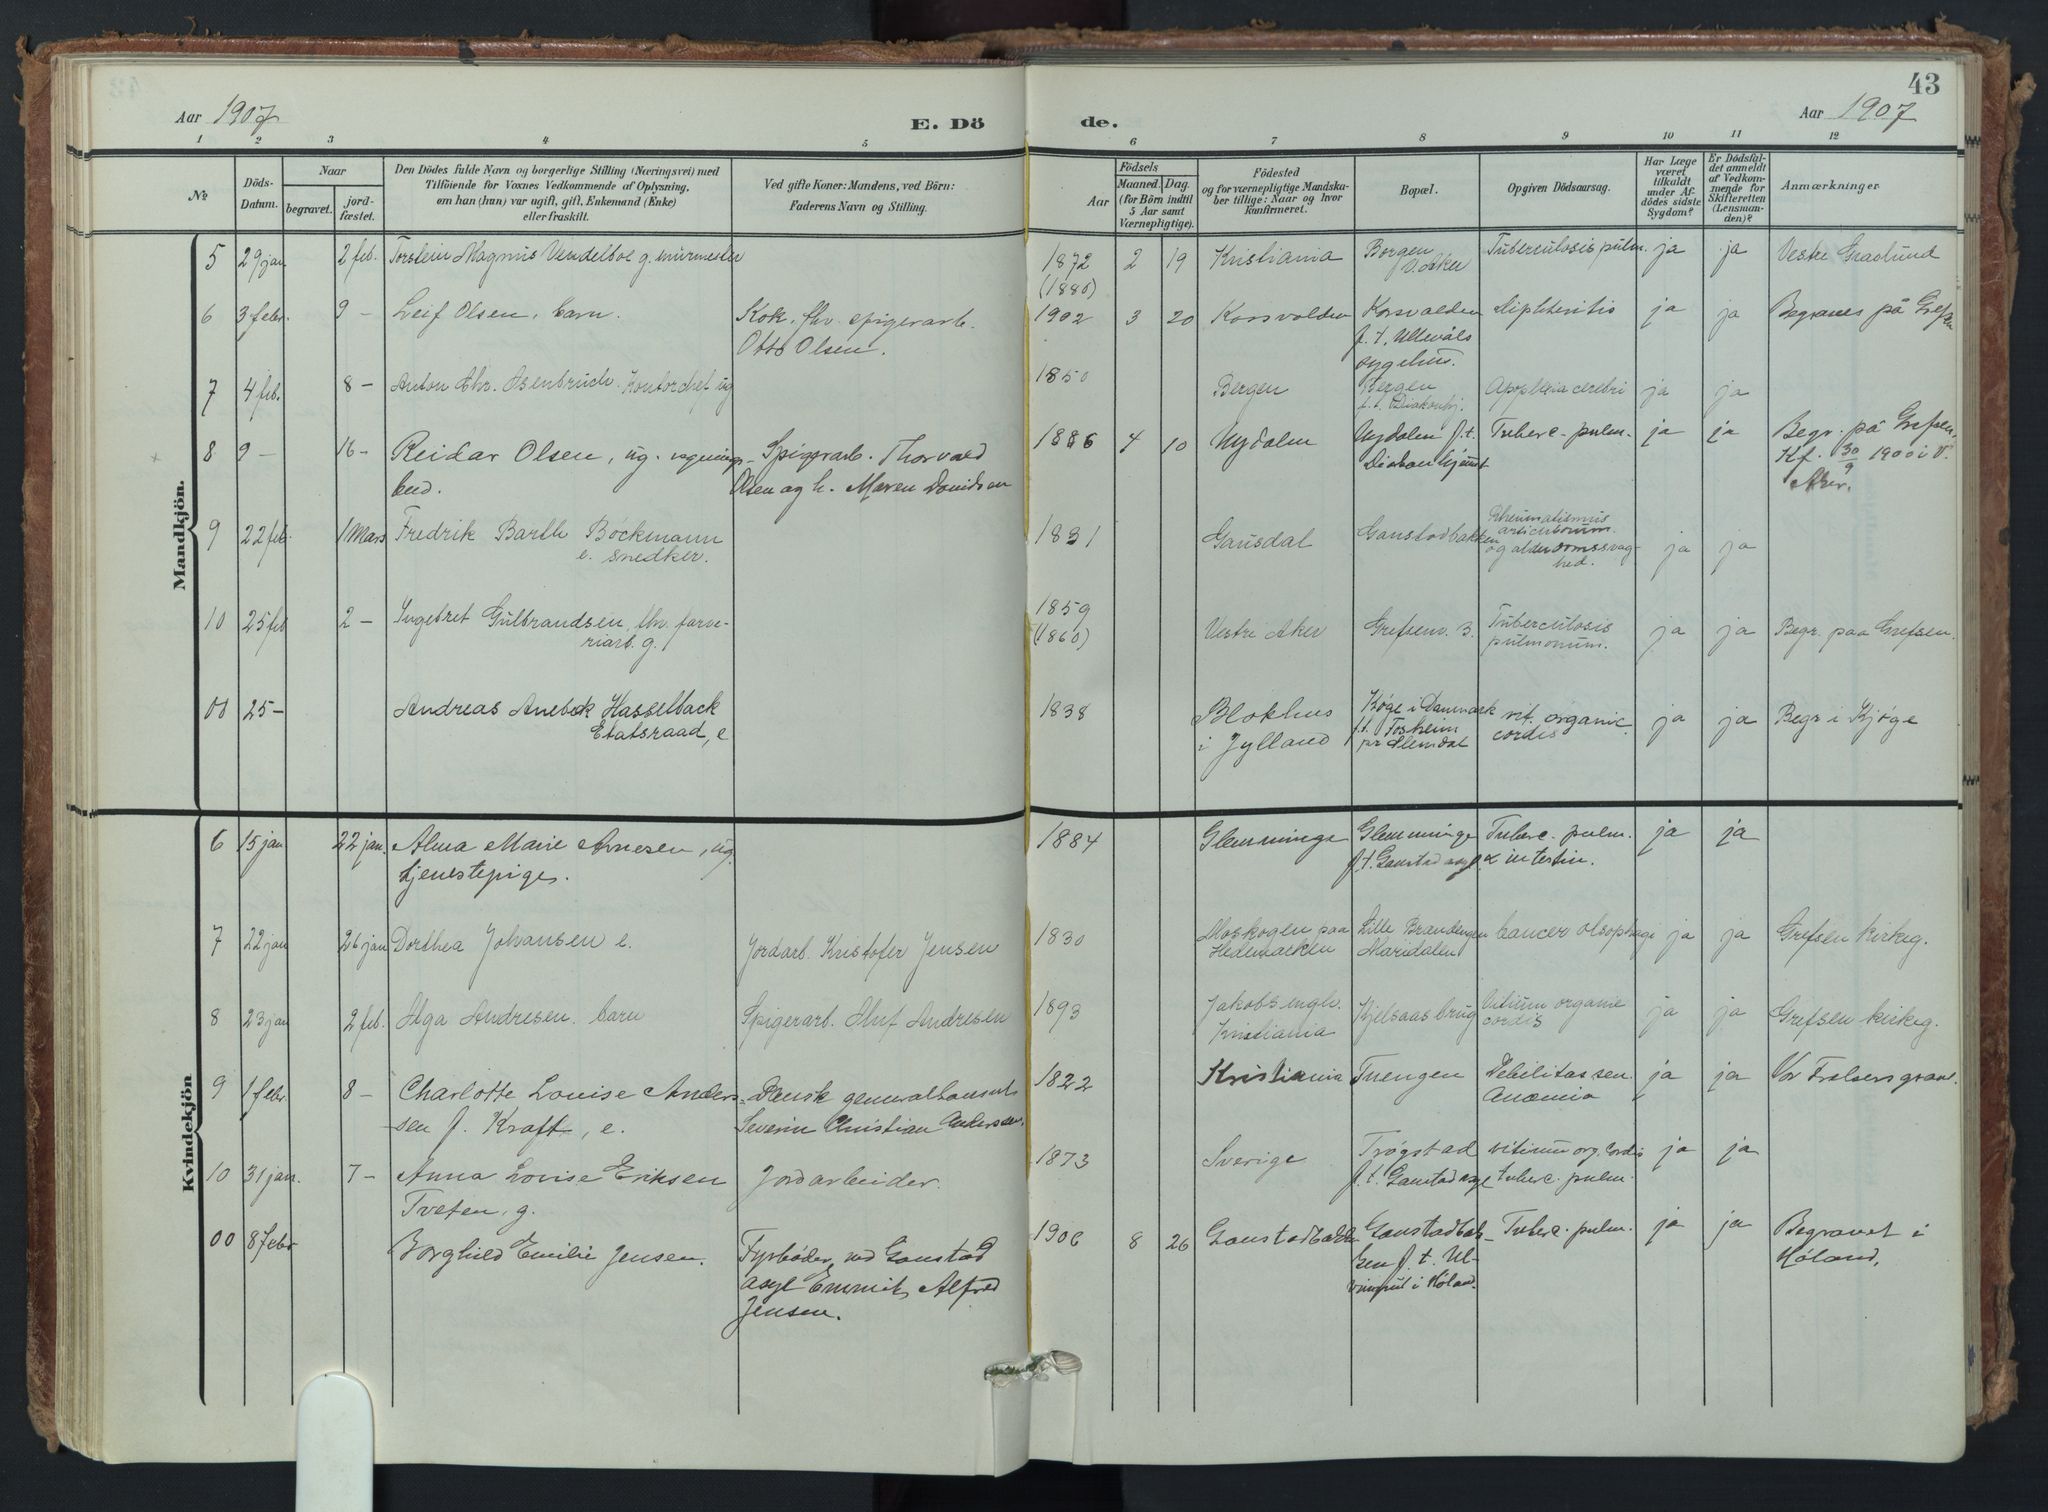 43
Aar 1907
E. Dö de.
Aar 1907
1 2 3 4 5 6 7 8 9 10 11 12
№
Döds-Datum.
Naar
begravet.
jord-fæstet.
Den Dödes fulde Navn og borgerlige Stilling (Næringsvei) med
Tilföiende for Voxnes Vedkommende af Oplysning,
om han (hun) var ugift, gift, Enkemand (Enke)
eller fraskilt.
Ved gifte Koner: Mandens, ved Börn:
Faderens Navn og Stilling.
Födsels
Aar
Maaned. Dag.
(for Börn indtil
5 Aar samt
Værnepligtige).
Födested
og for værnepligtige Mandska-
ber tillige: Naar og hvor
konfirmeret.
Bopæl.
Opgiven Dödsaarsag.
Har Læge
været
tilkaldt
under Af-
dödes sidste
Sygdom?
Er Dödsfal-
det anmeldt
af Vedkom-
mende for
Skifteretten
(Lensman-
den)?
Anmærkninger
Mandkjön.
5 29 jan 2 feb. Torstein Magnus Vendelboe g. murmester 1872 2 19 Kristiania Borgen Tuberculosis pulm. ja ja Vestre Gravlund
(1880) V. Aker
6 3 febr. 9 - Leif Olsen, barn. Kok, fhv. spigerarb. 1902 3 20 Korsvolden Korsvolden Diphteritis ja ja Begraves på Grefsen
Otto Olsen. f. t. Ullevåls
sygehus.
7 4 feb. 8 - Anton Chr. Isenbruch. Kontorchef ug 1850 Bergen Bergen Apoplexia cerebri ja ja
f. t. Diakonhj.
8 9 - 16 - Reidar Olsen, ug. Spigerarb. Thorvald 1886 4 10 Nydalen Nydalen f. t. Tuberc. pulm. ja ja Begr. på Grefsen,
bud. Olsen og h. Maren Davidsen Diakonhjemt Kf. 30/9 1900 i V.
Aker.
9 22 feb 1 Mars Fredrik Barth Böckmann 1831 Gausdal Gaustadbakken Rheumatismus ja ja
e. snedker. articulorum
og alderdomssvag-
hed.
10 25 feb 2 - Ingebret Gulbrandsen, fhv. farve- 1859 Vestre Aker Grefsenv. 3. Tuberculosis ja ja Begr. paa Grefsen.
riarb. g. (1860) pulmonum.
00 25 - Andreas Anebek Hasselback 1838 Blokhus Köge i Danmark vit. organic. ja ja Begr i Kjøge
Etatsraad, e i Jylland f. t. Foskeim cordis
pr Slemdal
Kvindekjön
6 15 jan 22 jan. Alma Marie Arnesen, ug. 1884 Glemminge Glemminge Tuberc. pulm. ja ja
tjenestepige. f. t. Gaustad asyl & intestin.
7 22 jan 26 jan Dorthea Johansen e. Jordarb. Kristofer Jensen 1830 Moskogen paa Lille Brændengen Cancer oesophagi ja ja Grefsen kirkeg.
Hedemarken Maridalen
8 23 jan 2 feb. Alga Andresen. barn Spigerarb. Aluf Andresen 1893 Jakobs mgh. Kjelsaas brug Vitium organic ja ja Grefsen kirkeg.
Kristiania cordis
9 1 febr. 8 - Charlotte Louise Anders- Dansk generalkonsul 1822 Kristiania Tuengen Debilitas sen. ja ja Vor Frelsers grav.
sen f. Kraft, e. Severin Christian Andersen. Anæmia
10 31 jan. 7 - Anna Lovise Eriksen Jordarbeider. 1873 Sverige Trøgstad vitium org. Cordis ja ja
Tveten, g. f. t. Gaustad asyl tuberc. pulm.
00 8 febr Borghild Emilie Jensen. Fyrbøder ved Gaustad 1906 8 26 Gaustadbakken Gaustadbak- Tuberc. pulm. ja ja Begravet i
asyl Emmik Alfred ken f. t. Ul- Høland.
Jensen. i Høland.